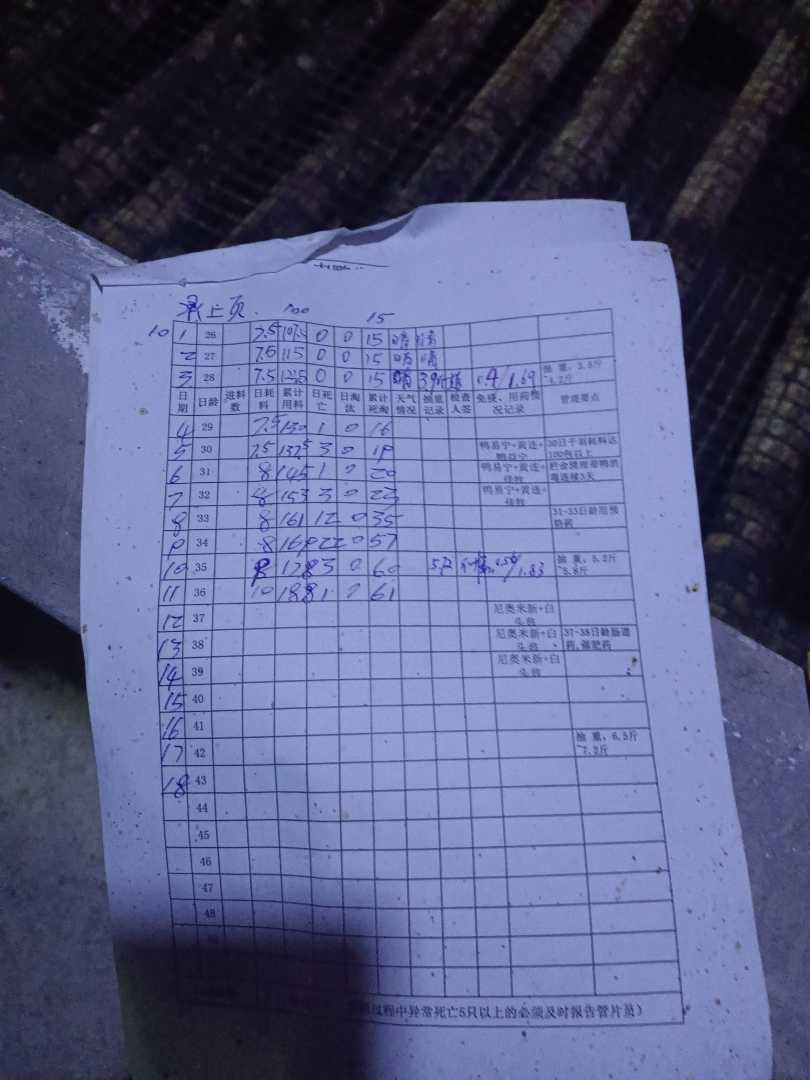 承上页. 100 15
10 1 26 7.5 107.5 0 0 15 晴
2 27 7.5 115 0 0 15 晴
3 28 7.5 122.5 0 0 15 晴 1.69 抽重，3.8斤~4.2斤
日期 日龄 进料数 日耗料 累计用料 日死亡 日淘汰 累计死淘 天气情况 抽重记录 检查人签 免疫、用药情况记录 管理要点
4 29 7.5 130 1 0 16
5 30 7.5 137.5 3 0 19 鸭易宁+黄连+ 30日千羽耗料达100包以上
6 31 8 145 1 0 20 鸭易宁+黄连+
7 32 8 153 3 0 23 鸭易宁+黄连+
8 33 8 161 12 0 35 31-33日龄用预防药
9 34 8 169 22 0 57
10 35 178 3 0 60 1.83 抽重，5.2斤~5.8斤
11 36 10 188 1 0 61
12 37 尼奥米新+白头翁
13 38 尼奥米新+白头翁 37-38日龄肠道药，催肥药
14 39 尼奥米新+白头翁
15 40
16 41
17 42 抽重，6.5斤~7.2斤
18 43
44
45
46
47
48
过程中异常死亡5只以上的必须及时报告管片员）